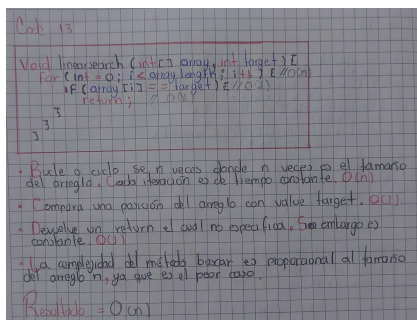 Cod 13
Void linearsearch (int[] array, int target) {
for (int = 0; i < array.length; i++) { //O(n)
if (array [i] == target) { //O(1)
return; // O(1)
}
}
}
• Bucle o ciclo se n veces donde n veces es el tamaño
del arreglo. Cada iteración es de tiempo constante. O(n)
• Compara una posición del arreglo con value target. O(1)
• Devuelve un return el cual no especifica. Sin embargo es
constante. O(1)
• La complejidad del método buscar es proporcional al tamaño
del arreglo n, ya que es el peor caso.
Resultado = O(n)